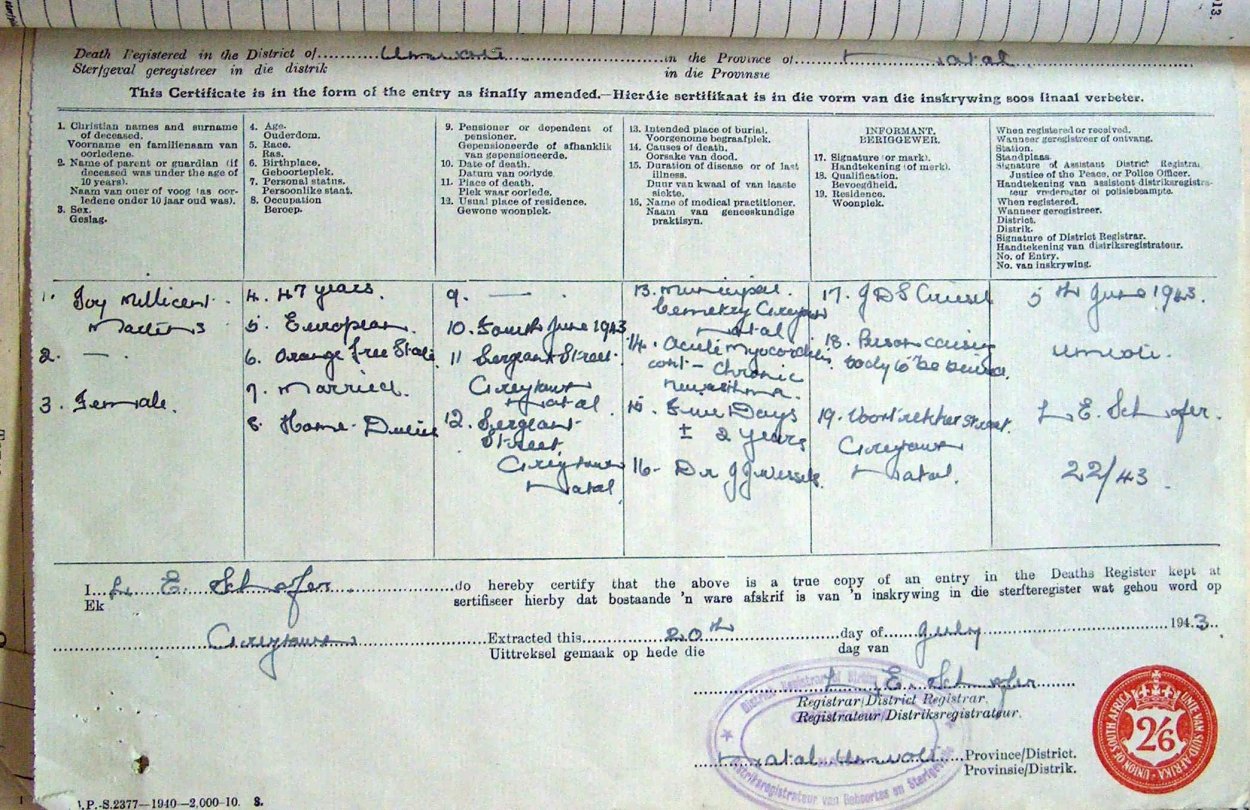 13.
Death Registered in the District of Umvoti in the Province of Natal
Sterfgeval geregistreer in die distrik in die Provinsie
This Certificate is in the form of the entry as finally amended.—Hierdie sertifikaat is in die vorm van die inskrywing soos finaal verbeter.
1. Christian names and surname
of deceased.
Voorname en familienaam van
oorledene.
2. Name of parent or guardian (if
deceased was under the age of
10 years).
Naam van ouer of voog (as oor-
ledene onder 10 jaar oud was).
3. Sex.
Geslag.
4. Age.
Ouderdom.
5. Race.
Ras.
6. Birthplace.
Geboorteplek.
7. Personal status.
Persoonlike staat.
8. Occupation
Beroep.
9. Pensioner or dependent of
pensioner.
Gepensioneerde of afhanklik
van gepensioneerde.
10. Date of death.
Datum van oorlyde.
11. Place of death.
Plek waar oorlede.
12. Usual place of residence.
Gewone woonplek.
13. Intended place of burial.
Voorgenome begraafplek.
14. Causes of death.
Oorsake van dood.
15. Duration of disease or of last
illness.
Duur van kwaal of van laaste
siekte.
16. Name of medical practitioner.
Naam van geneeskundige
praktisyn.
INFORMANT.
BERIGGEWER.
17. Signature (or mark).
Handtekening (of merk).
18. Qualification.
Bevoegdheid.
19. Residence.
Woonplek.
When registered or received.
Wanneer geregistreer of ontvang.
Station.
Standplaas.
Signature of Assistant District Registrar,
Justice of the Peace, or Police Officer.
Handtekening van assistent-distriksregistra-
teur vrederegter of polisiebeampte.
When registered.
Wanneer geregistreer.
District.
Distrik.
Signature of District Registrar.
Handtekening van distriksregistrateur.
No. of Entry.
No. van inskrywing.
1. Joy Millicent
2. —.
3. Female.
4. 47 years.
5. European.
6. Orange Free State
7. Married.
8. Home Duties
9. —
10. Fourth June 1943
11 Sergeant Street
Greytown
Natal.
12. Sergeant
Street,
Greytown
Natal.
13. Municipal
Cemetery Greytown
Natal
14. Acute Myocarditis
cont - Chronic
15. Five Days
± 2 years
16. Dr J J Wessels.
17. J D S
18. Person causing
body to be buried.
19. Voortrekker Street.
Greytown
Natal.
5th June 1943.
Umvoti.
L. E. Schafer.
22/43.
I L. E. Schafer do hereby certify that the above is a true copy of an entry in the Deaths Register kept at
Ek sertifiseer hierby dat bostaande 'n ware afskrif is van 'n inskrywing in die sterfteregister wat gehou word op
Greytown Extracted this 20th day of July 1943.
Uittreksel gemaak op hede die dag van
L. E. Schafer
Registrar/District Registrar.
Registrateur/Distriksregistrateur.
Natal Umvoti Province/District.
Provinsie/Distrik.
Distriksregistrateur van Geboortes en Sterfgevalle
UNION OF SOUTH AFRICA · UNIE VAN SUID AFRIKA
2/6
.P.-S.2377—1940—2,000-10. S.